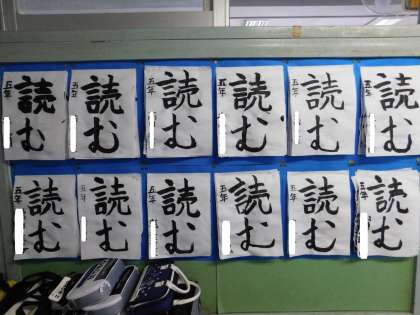 読む
五年
読む
五年
読む
五年
読む
五年
読む
五年
読む
五年
読む
五年
読む
五年
読む
五年
読む
五年
読む
五年
読む
五年